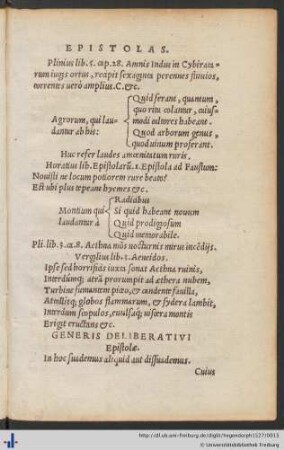 EPISTOLAS.
Plinius lib. 5. cap. 28. Amnis Indus in Cybiratarum iugis ortus, recipit sexaginta perennes fluuios,
torrentes uerò amplius. C. &c.
Agrorum, qui laudantur ab his:
Quid ferant, quantum,
quo ritu colantur, cuiusmodi cultores habeant.
Quod arborum genus,
quod uinum proferant.
Huc refer laudes amœnitatum ruris.
Horatius lib. Epistolarū. 1. Epistola ad Faustum:
Nouisti ne locum potiorem rure beato?
Est ubi plus tepeant hyemes &c.
Montium qui laudantur à
Radicibus
Si quid habeant nouum
Quid prodigosum
Quid memorabile.
Pli. lib. 3. ca. 8. Aethna mōs nocturnis mirus incēdijs.
Vergilius lib. 3. Aeneidos.
Ipse sed horrificis iuxta sonat Aethna ruinis,
Interdumq; atrā prorumpit ad æthera nubem,
Turbine fumantem piceo, & candente fauilla,
Attollitq; globos flammarum, & sydera lambit,
Interdum scopulos, euulsaq; uiscera montis
Erigit eructans &c.
GENERIS DELIBERATIVI
Epistolæ.
In hoc suademus aliquid aut dissuademus.
Cuius
http://dl.ub.uni-freiburg.de/diglit/hegendorph1527/0013
© Universitätsbibliothek Freiburg